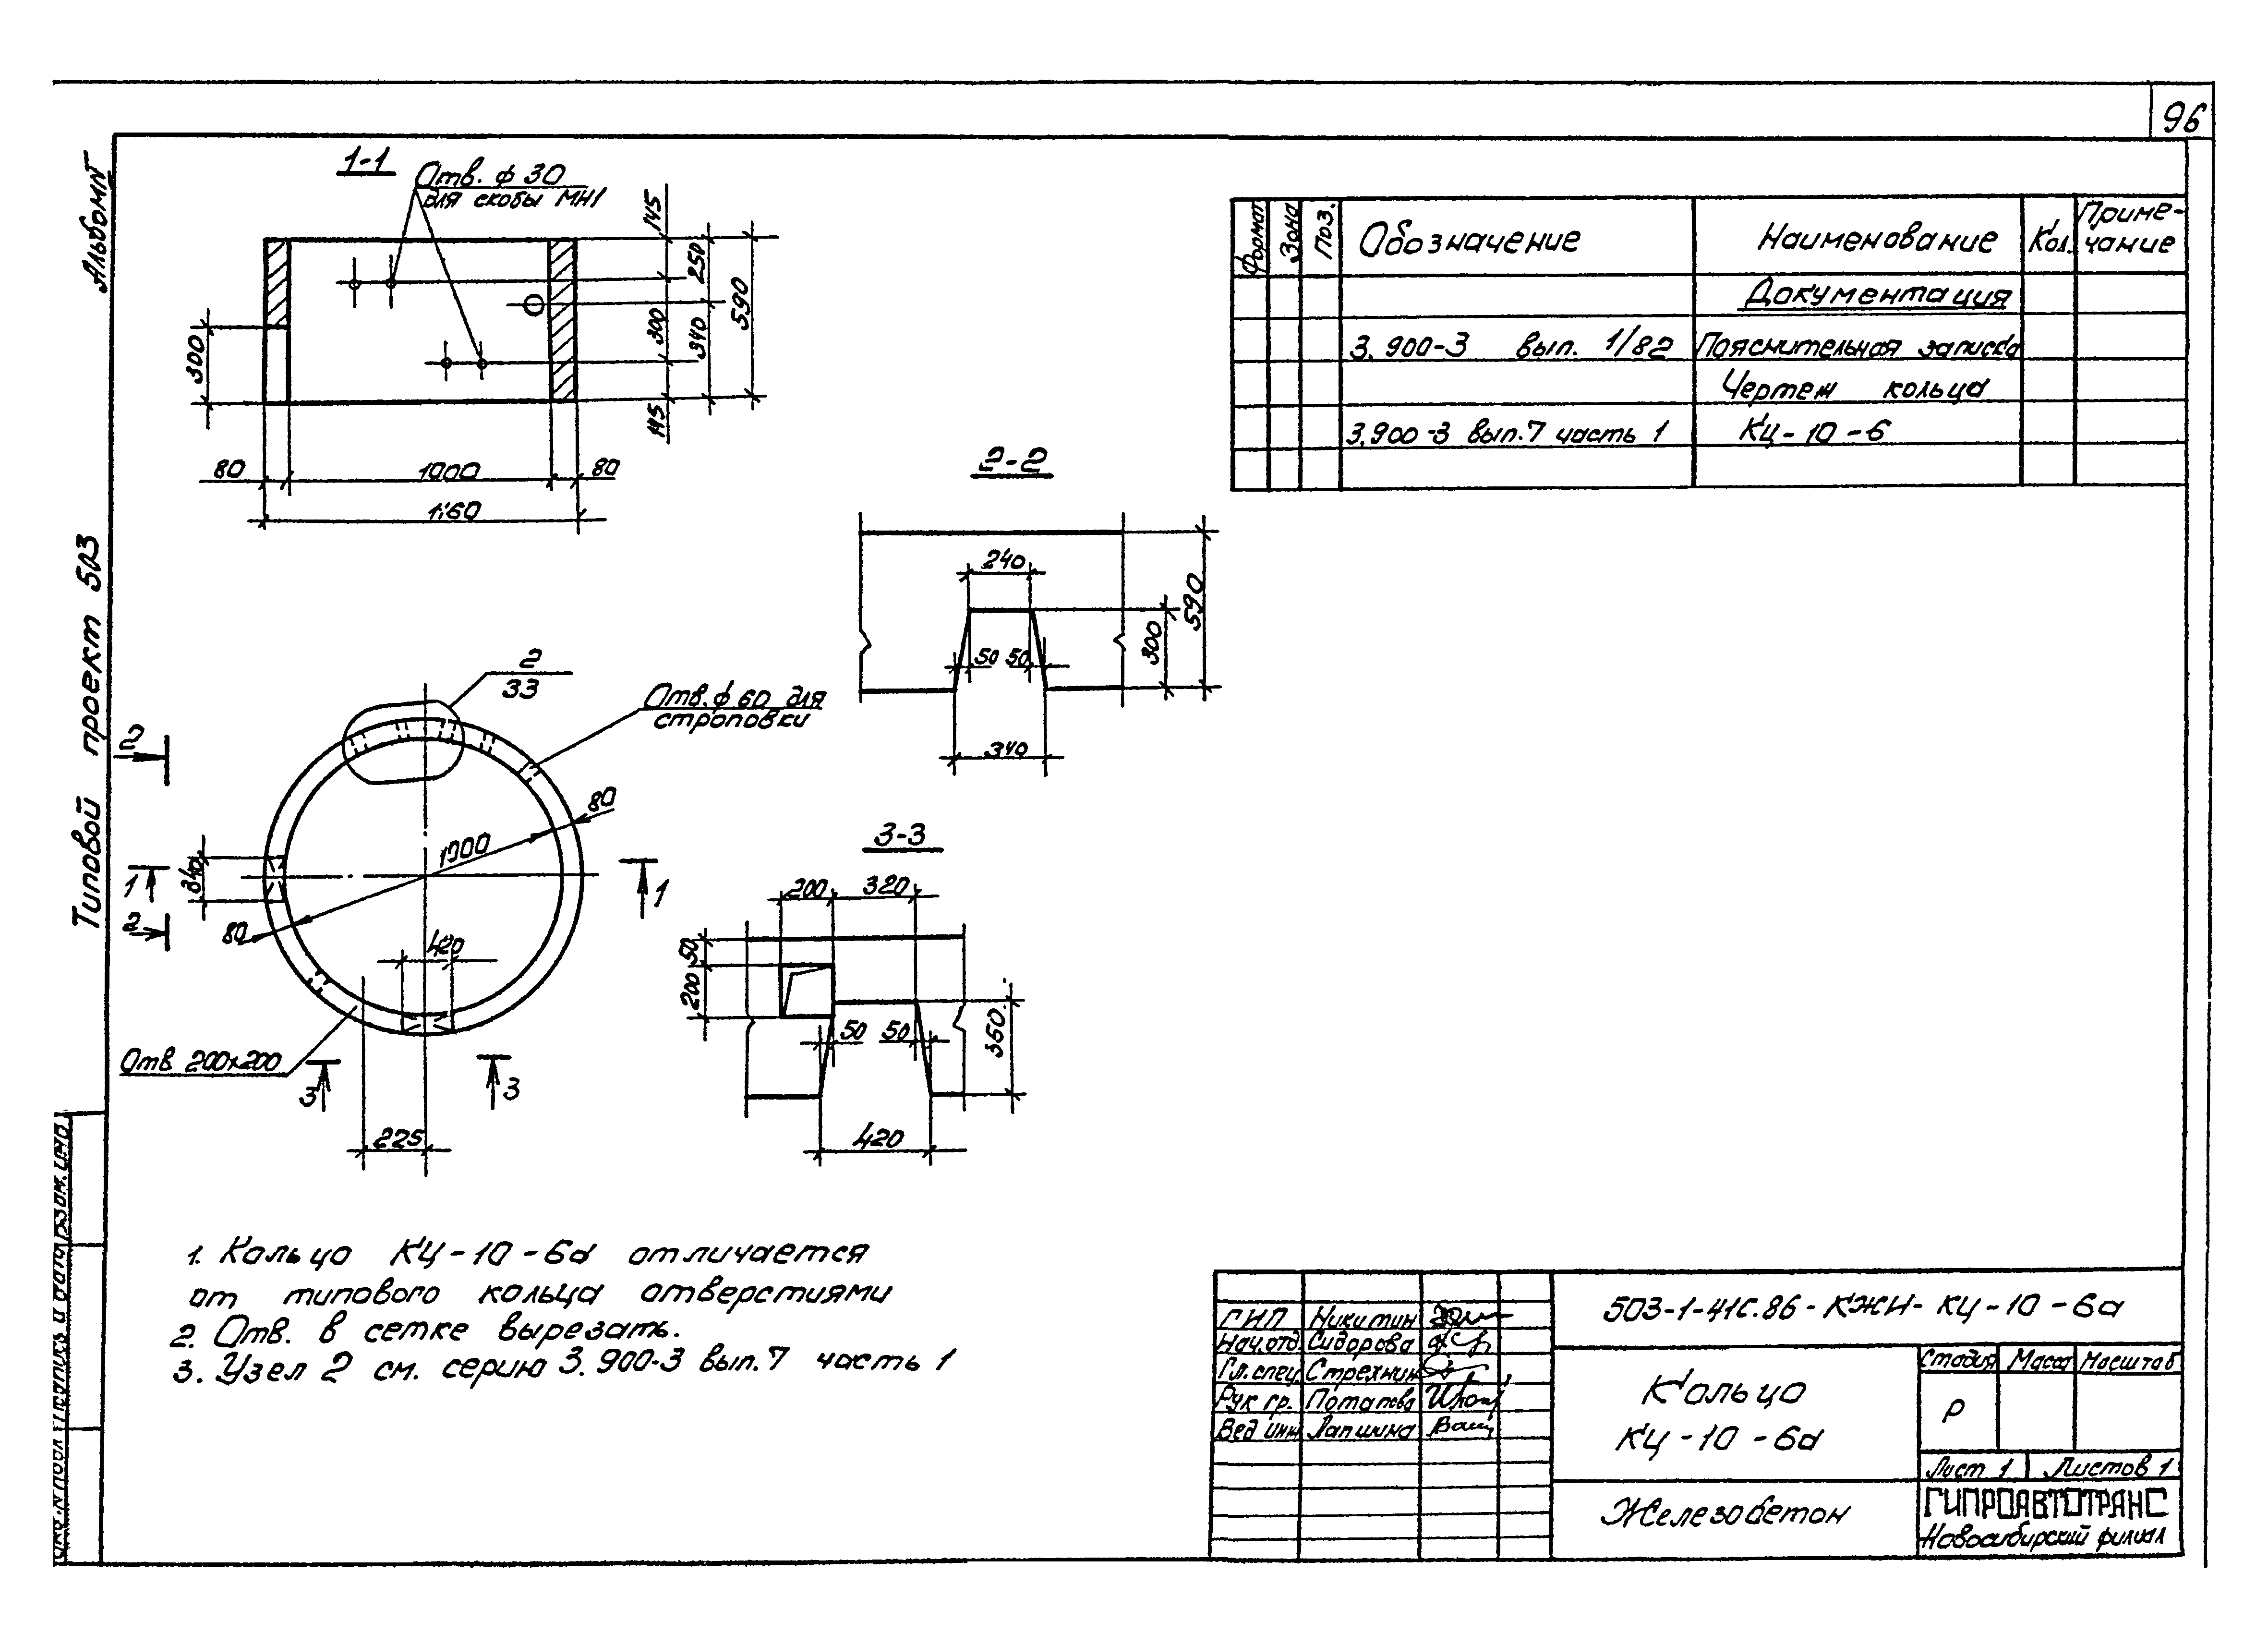 96
Альбом IV
Типовой проект 503
1-1
Отв. ф 30
для скобы МН1
145
250
590
300
340
145
300
80
1000
80
1160
2-2
240
50
50
300
590
340
2
33
Отв. ф 60 для
строповки
2
1
2
340
1000
80
80
1
420
Отв 200х200
3
3
225
3-3
200
320
50
200
50
50
350
420
Формат
Зона
Поз.
Обозначение
Наименование
Кол.
Приме-
чание
Документация
3.900-3 вып. 1/82 Пояснительная записка
Чертеж кольца
3.900-3 вып.7 часть 1 КЦ-10-6
1. Кольцо КЦ-10-6а отличается
от типового кольца отверстиями
2. Отв. в сетке вырезать.
3. Узел 2 см. серию 3.900-3 вып.7 часть 1
503-1-41с.86-КЖИ-КЦ-10-6а
ГИП Никитин
Нач.отд. Сидорова
Гл.спец. Стрехнин
Рук гр. Потапова
Вед инж Лапшина
Кольцо
КЦ-10-6а
Стадия Масса Масштаб
Р
Лист 1 Листов 1
Железобетон
ГИПРОАВТОТРАНС
Новосибирский филиал